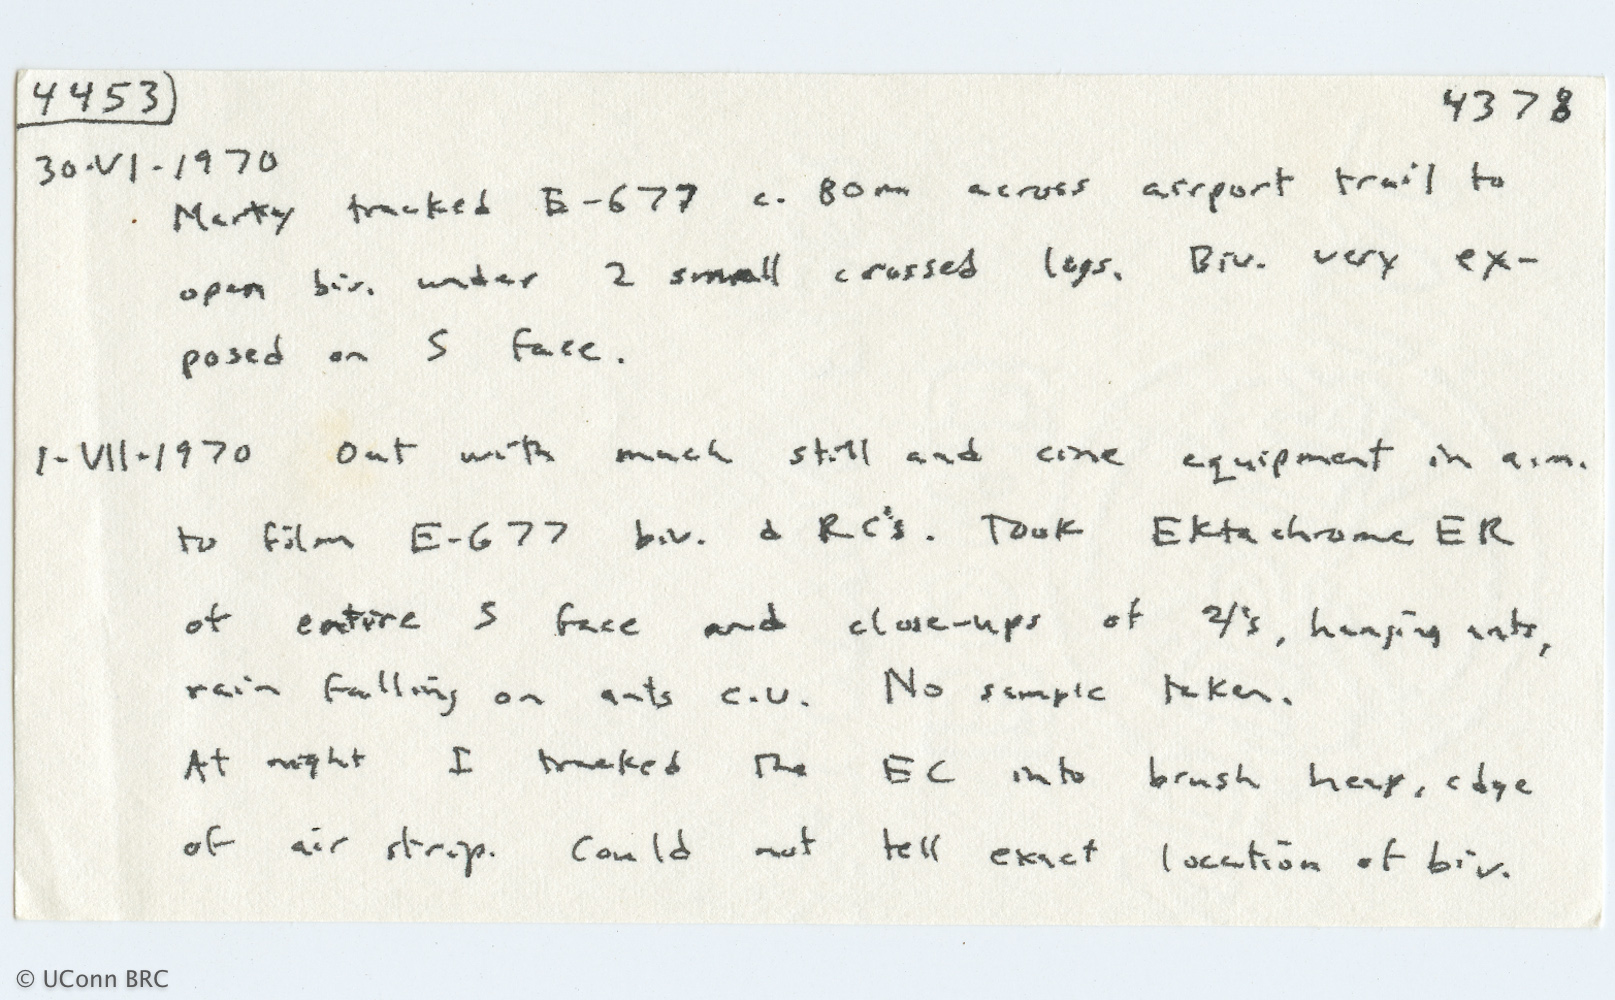 4453 4378
30-VI-1970
Marky tracked E-677 c. 80m across airport trail to
open biv. under 2 small crossed logs. Biv. very ex-
posed on S face.
1-VII-1970 Out with much still and cine equipment in a.m.
to film E-677 biv. & RC's. Took Ektachrome ER
of entire S face and close-ups of 's, hanging ants,
rain falling on ants c.u. No sample taken.
At night I tracked the EC into brush heap, edge
of air strip. Could not tell exact location of biv.
© UConn BRC